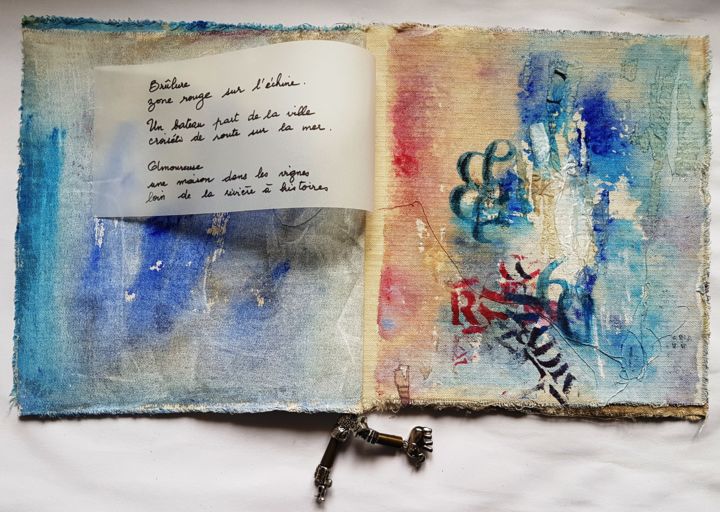 Brûlure
zone rouge sur l'échine.
Un bateau part de la ville
croisées de route sur la mer.
Amoureuse
une maison dans les vignes
loin de la rivière à histoires